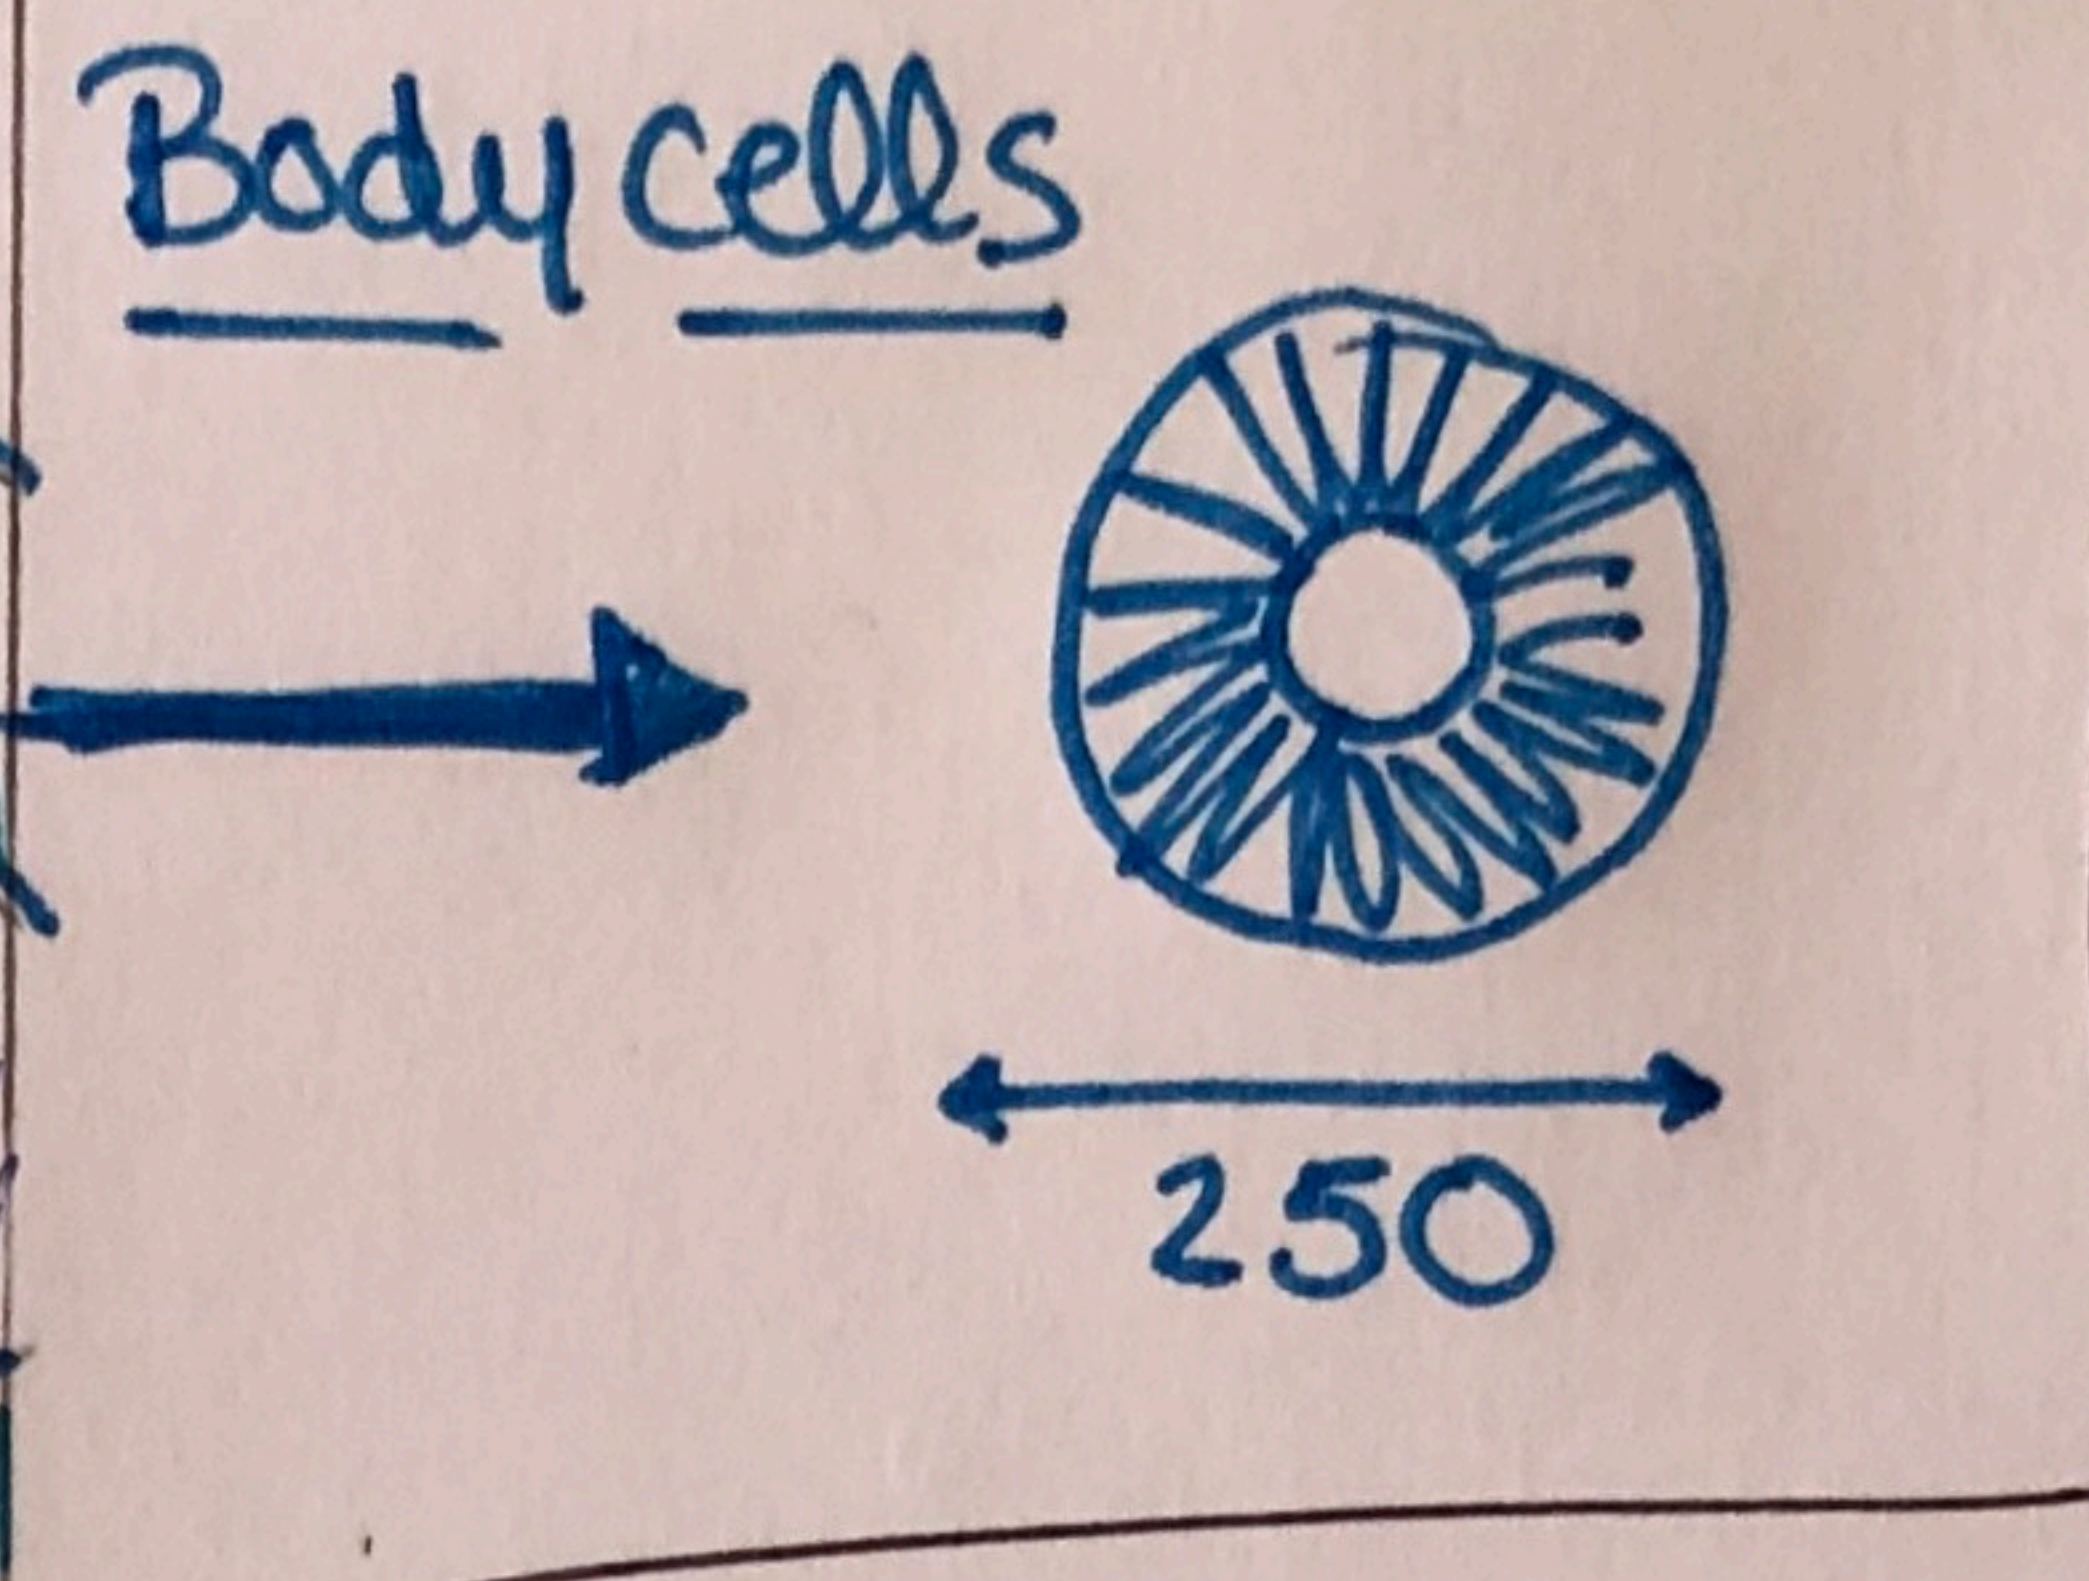 Body cells
250